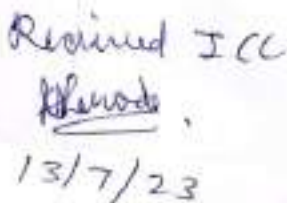 Received ICC
13/7/23